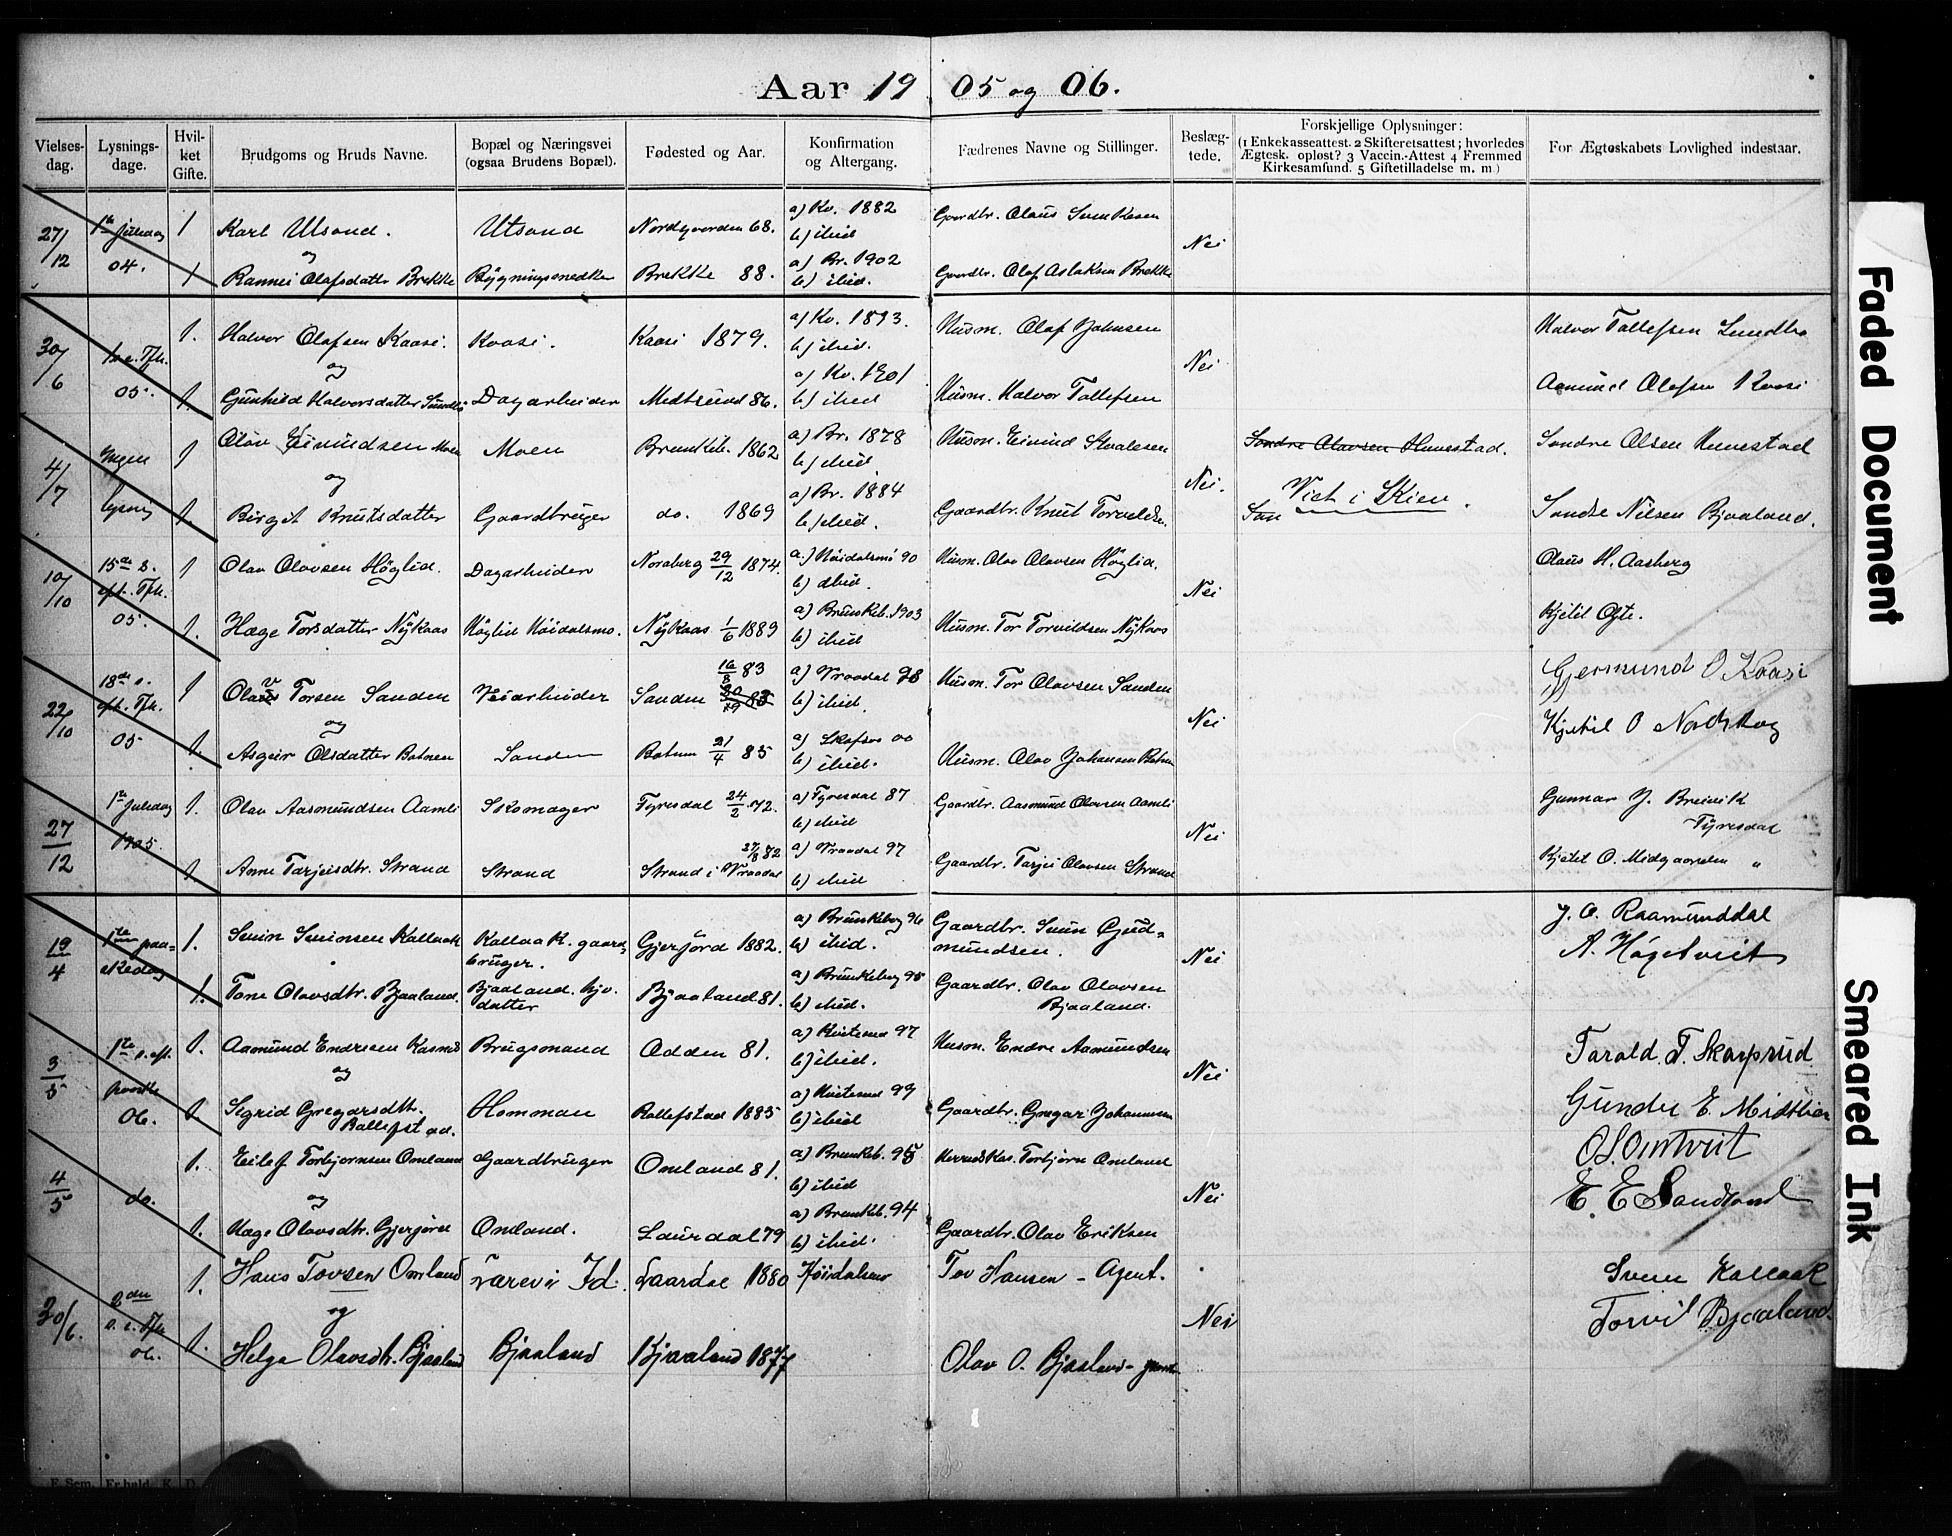 Aar 1905 og 06.
Vielses-dag.
Lysnings-dage.
Hvil-ket Gifte.
Brudgoms og Bruds Navne.
Bopæl og Næringsvei (ogsaa Brudens Bopæl).
Fødested og Aar.
Konfirmation og Altergang.
Fædrenes Navne og Stillinger.
Beslæg-tede.
Forskjellige Oplysninger:
(1 Enkekasseattest. 2 Skifteretsattest; hvorledes
Ægtesk. opløst? 3 Vaccin.-Attest 4 Fremmed
Kirkesamfund. 5 Giftetilladelse m. m.)
For Ægteskabets Lovlighed indestaar.
27/12 1ste juledag 04. 1 Karl Utsond. Utsond 68. a) Kv. 1882 b) ibid Gaardbr. Olaus Nei
og
1 Rannei Olafsdatter Brekke Bygningssnedker Brekke 88. a) Br. 1902 b) ibid. Gaardbr. Olaf Aslaksen Brekke
30/6 05. 1. Halvor Olafsen Kaasi. Kaasi. Kaasi 1879. a) Kv. 1893. b) ibid. Husm. Olaf Johnsen Nei Halvor Tallefsen
og
1. Gunhild Halvorsdatter Dagarbeider 86. a) Kv. 1901 b) ibid Husm. Halvor Tallefsen Aamund Olefsen Kaasi
4/7 Ingen lysning 1 Olav Eivindsen Moen Moen Brunkeb. 1862 a) Br. 1878 b) ibid. Husm. Eivind Nei. Sondre Olavsen Hunestad. Sondre Olsen Hunestad
og
1. Birgit Knutsdatter Gaardbruger do. 1869 a) Br. 1884 b) ibid. Gaardbr. Knut Viet i Skien. Sondre Nilsen Bjaaland.
10/10 15de s. eft. Tfh. 05. 1 Olav Olavsen Höglid. Dagarbeider Noraberg 29/12 1874. a.) Höidalsmo 90 b) ibid. Husm. Olav Olavsen Höglid. Nei Olaus H. Aasberg
1. Hæge Torsdatter Nykaas Höglid Höidalsmo. Nykaas 1/6 1889 a) Brunkeb. 1903 b) ibid Husm. Tor Torvildsen Nykaas Kjetil Ofte.
22/10 18de s. eft. Tfh. 05 1 Olav Torsen Sanden Veiarbeider Sanden 16/8 83 a) Vraadal 98 b) ibid. Husm. Tor Olavsen Sanden Nei Gjermund O Kaasi
og
1. Asgier Olsdatter Botnen Sanden Botnen 21/4 85 a) Skafsaa 00 b) ibid. Husm. Olav Johansen Botnen Kjetil O Nordskog
27/12 1ste Juledag 1905. 1. Olav Aasmundsen Aamli Skomager Fyresdal 24/2 72. a) Fyresdal 87 b) ibid Gaardbr. Aasmund Olavsen Aamli Nei Gunnar J. Breivik
Fyresdal
1. Anne Tarjeisdtr. Strand Strand Strand i Vraadal 27/8 82 a) Vraadal 97 b) ibid Gaardbr. Tarjei Olavsen Strand Kjetil O. Midgaarden "
19/4 1ste paaskedag 1. Svein Sveinsen Kallaak Kallaak. gaardbruger. Gjerjörd 1882. a) Brunkeberg 96 b) ibid. Gaardbr. Svein Gudmundsen. Nei J. O. Raamunddal
A. Högetveit
1. Tone Olavsdtr. Bjaaland. Bjaaland. Bjaaland 81. a) Brunkeberg 95 b) ibid. Gaardbr. Olav Olavsen Bjaaland.
3/5 1ste s. eft. paaske 06. 1. Aamund Endresen Brugsmand Odden 81. a) Kvitesed 97 b) ibid. Husm. Endre Aamundsen Nei Tarald. T. Skarprud
og
1 Sigrid Gregarsdtr. Rallefstad. Hommen Rallefstad 1885 a) Kvitesed 99 b) ibid Gaardbr. Gregar Johannesen Gunder E. Midtlien
4/5 do. 1. Eilef Torbjornsen Omland Gaardbruger Omland 81. a) Brunkeb. 95 b) ibid Torbjörn Omland Nei O. Omtveit
og
1. Hæge Olavsdtr. Gjerjörd Omland. Laurdal 79 a) Brunkeb. 94 b) ibid. Gaardbr. Olav Eriksen E. E Sandland
30/6. 2den s. e. Tfh. 06. 1. Hans Tovsen Omland Laardal 1880 Höidalsmo Tov Hansen - Agent. Nei Svein Kallaak
og
1. Helge Olavsdtr. Bjaaland Bjaaland Bjaaland 1877 Olav O. Bjaaland - Torvil Bjaaland.
Faded Document
Smeared Ink